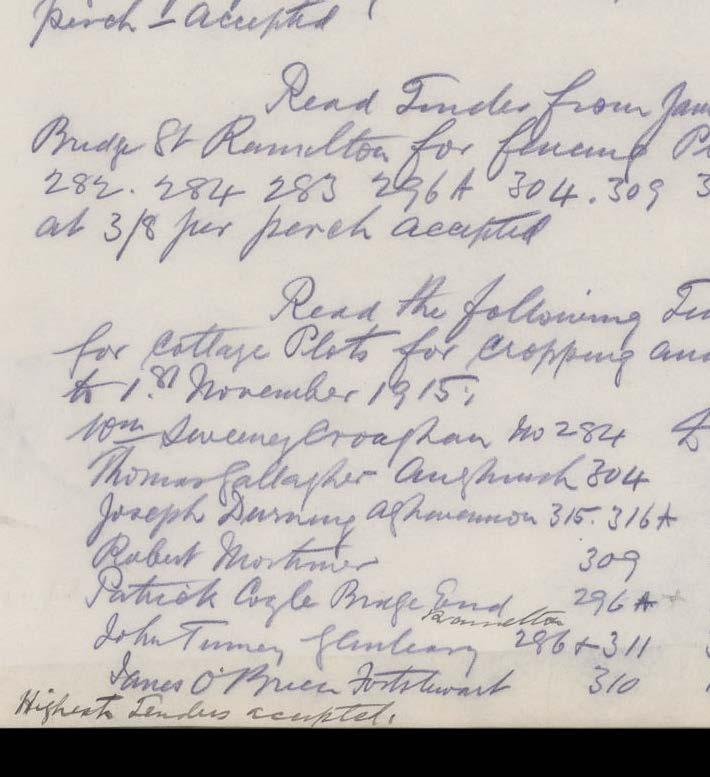 perch - accepted
Read Tender from Jam
Bridge St Ramelton for fencing Pl
282. 284 283 296A 304. 309 3
at 3/8 per perch accepted
Read the following Ten
for Cottage Plots for Cropping and
to 1.st November 1915;
Wm Sweeney Croaghan No 284 £
Thomas Gallagher Aughnish 304
Joseph Durning Aghavennon 315. 316A
Robert Mortimer 309
Patrick Coyle Bridge End 296A +
Ramelton
John Turney Glenleary 286 + 311
James O'Brien Fortstewart 310
Highest Tenders accepted.